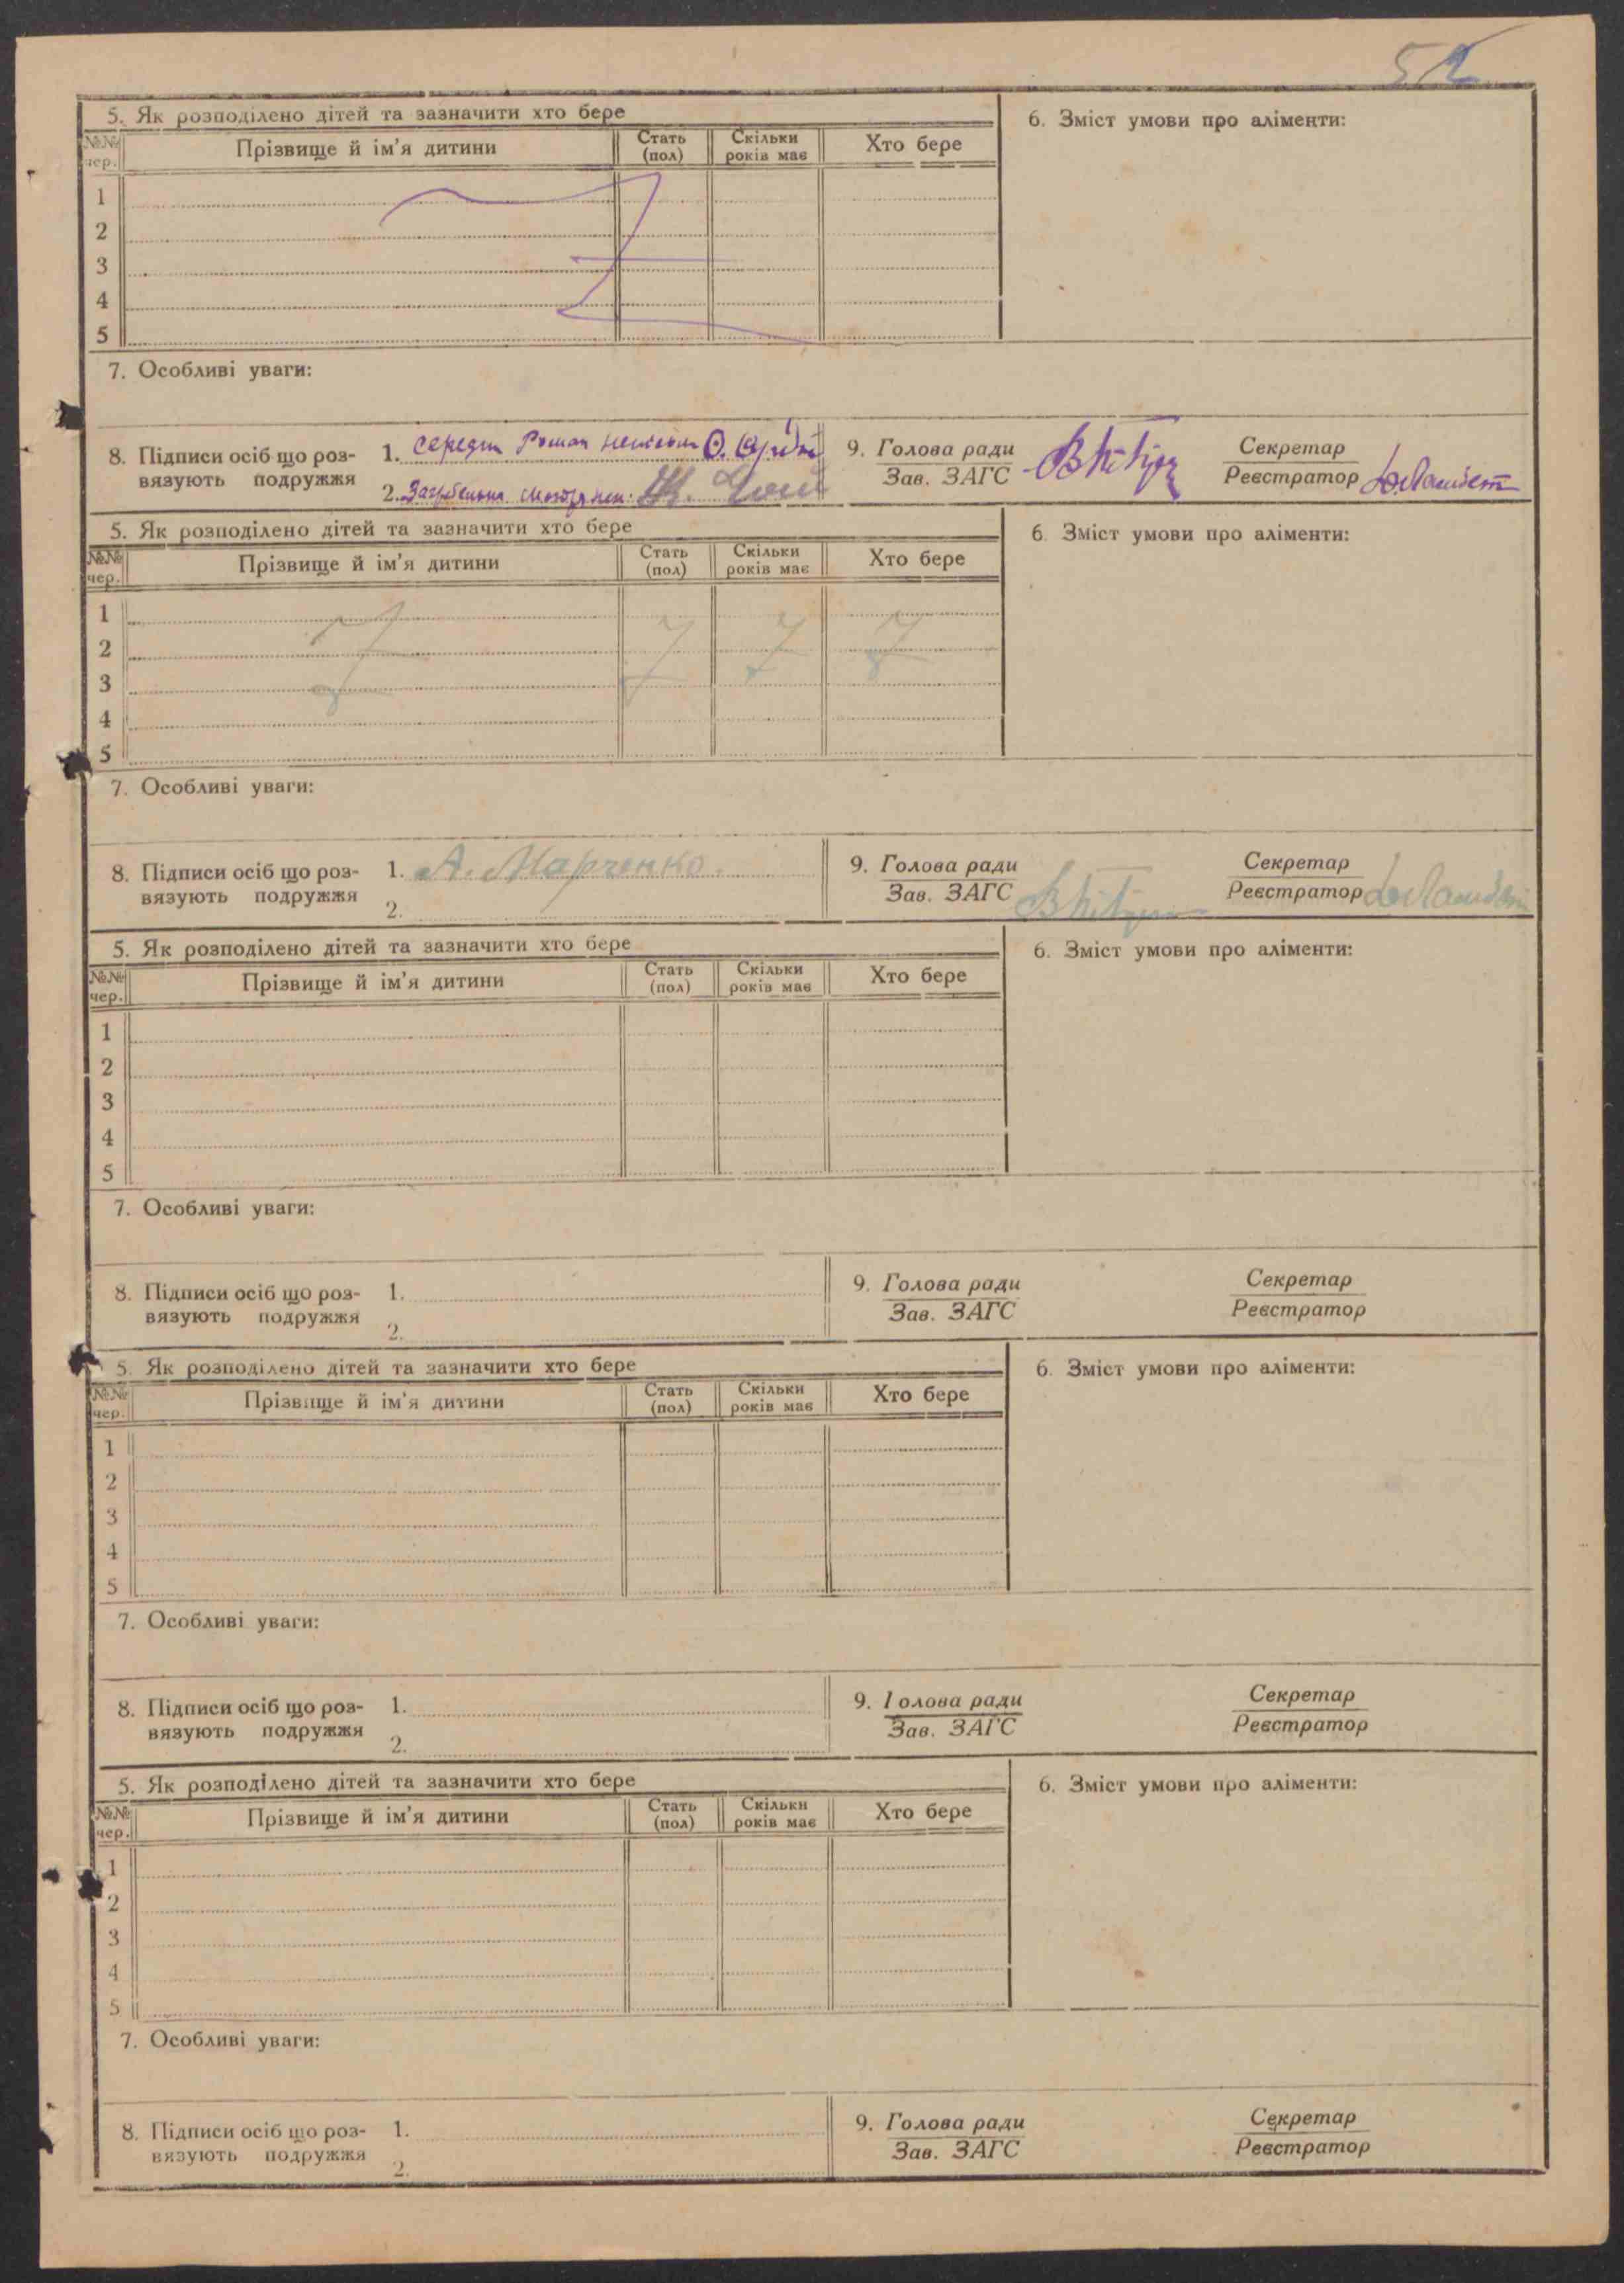 52
5. Як розподілено дітей та зазначити хто бере
6. Зміст умови про аліменти:
№№ чер. Прізвище й ім'я дитини Стать (пол) Скільки років має Хто бере
1
2
3
4
5
7. Особливі уваги:
8. Підписи осіб що роз-
вязують подружжя
1. Середа Роман
2.
9. Голова ради
Зав. ЗАГС
Секретар
Реєстратор
5. Як розподілено дітей та зазначити хто бере
6. Зміст умови про аліменти:
№№ чер. Прізвище й ім'я дитини Стать (пол) Скільки років має Хто бере
1
2
3
4
5
7. Особливі уваги:
8. Підписи осіб що роз-
вязують подружжя
1. А. Марченко.
2.
9. Голова ради
Зав. ЗАГС
Секретар
Реєстратор
5. Як розподілено дітей та зазначити хто бере
6. Зміст умови про аліменти:
№№ чер. Прізвище й ім'я дитини Стать (пол) Скільки років має Хто бере
1
2
3
4
5
7. Особливі уваги:
8. Підписи осіб що роз-
вязують подружжя
1.
2.
9. Голова ради
Зав. ЗАГС
Секретар
Реєстратор
5. Як розподілено дітей та зазначити хто бере
6. Зміст умови про аліменти:
№№ чер. Прізвище й ім'я дитини Стать (пол) Скільки років має Хто бере
1
2
3
4
5
7. Особливі уваги:
8. Підписи осіб що роз-
вязують подружжя
1.
2.
9. Голова ради
Зав. ЗАГС
Секретар
Реєстратор
5. Як розподілено дітей та зазначити хто бере
6. Зміст умови про аліменти:
№№ чер. Прізвище й ім'я дитини Стать (пол) Скільки років має Хто бере
1
2
3
4
5
7. Особливі уваги:
8. Підписи осіб що роз-
вязують подружжя
1.
2.
9. Голова ради
Зав. ЗАГС
Секретар
Реєстратор